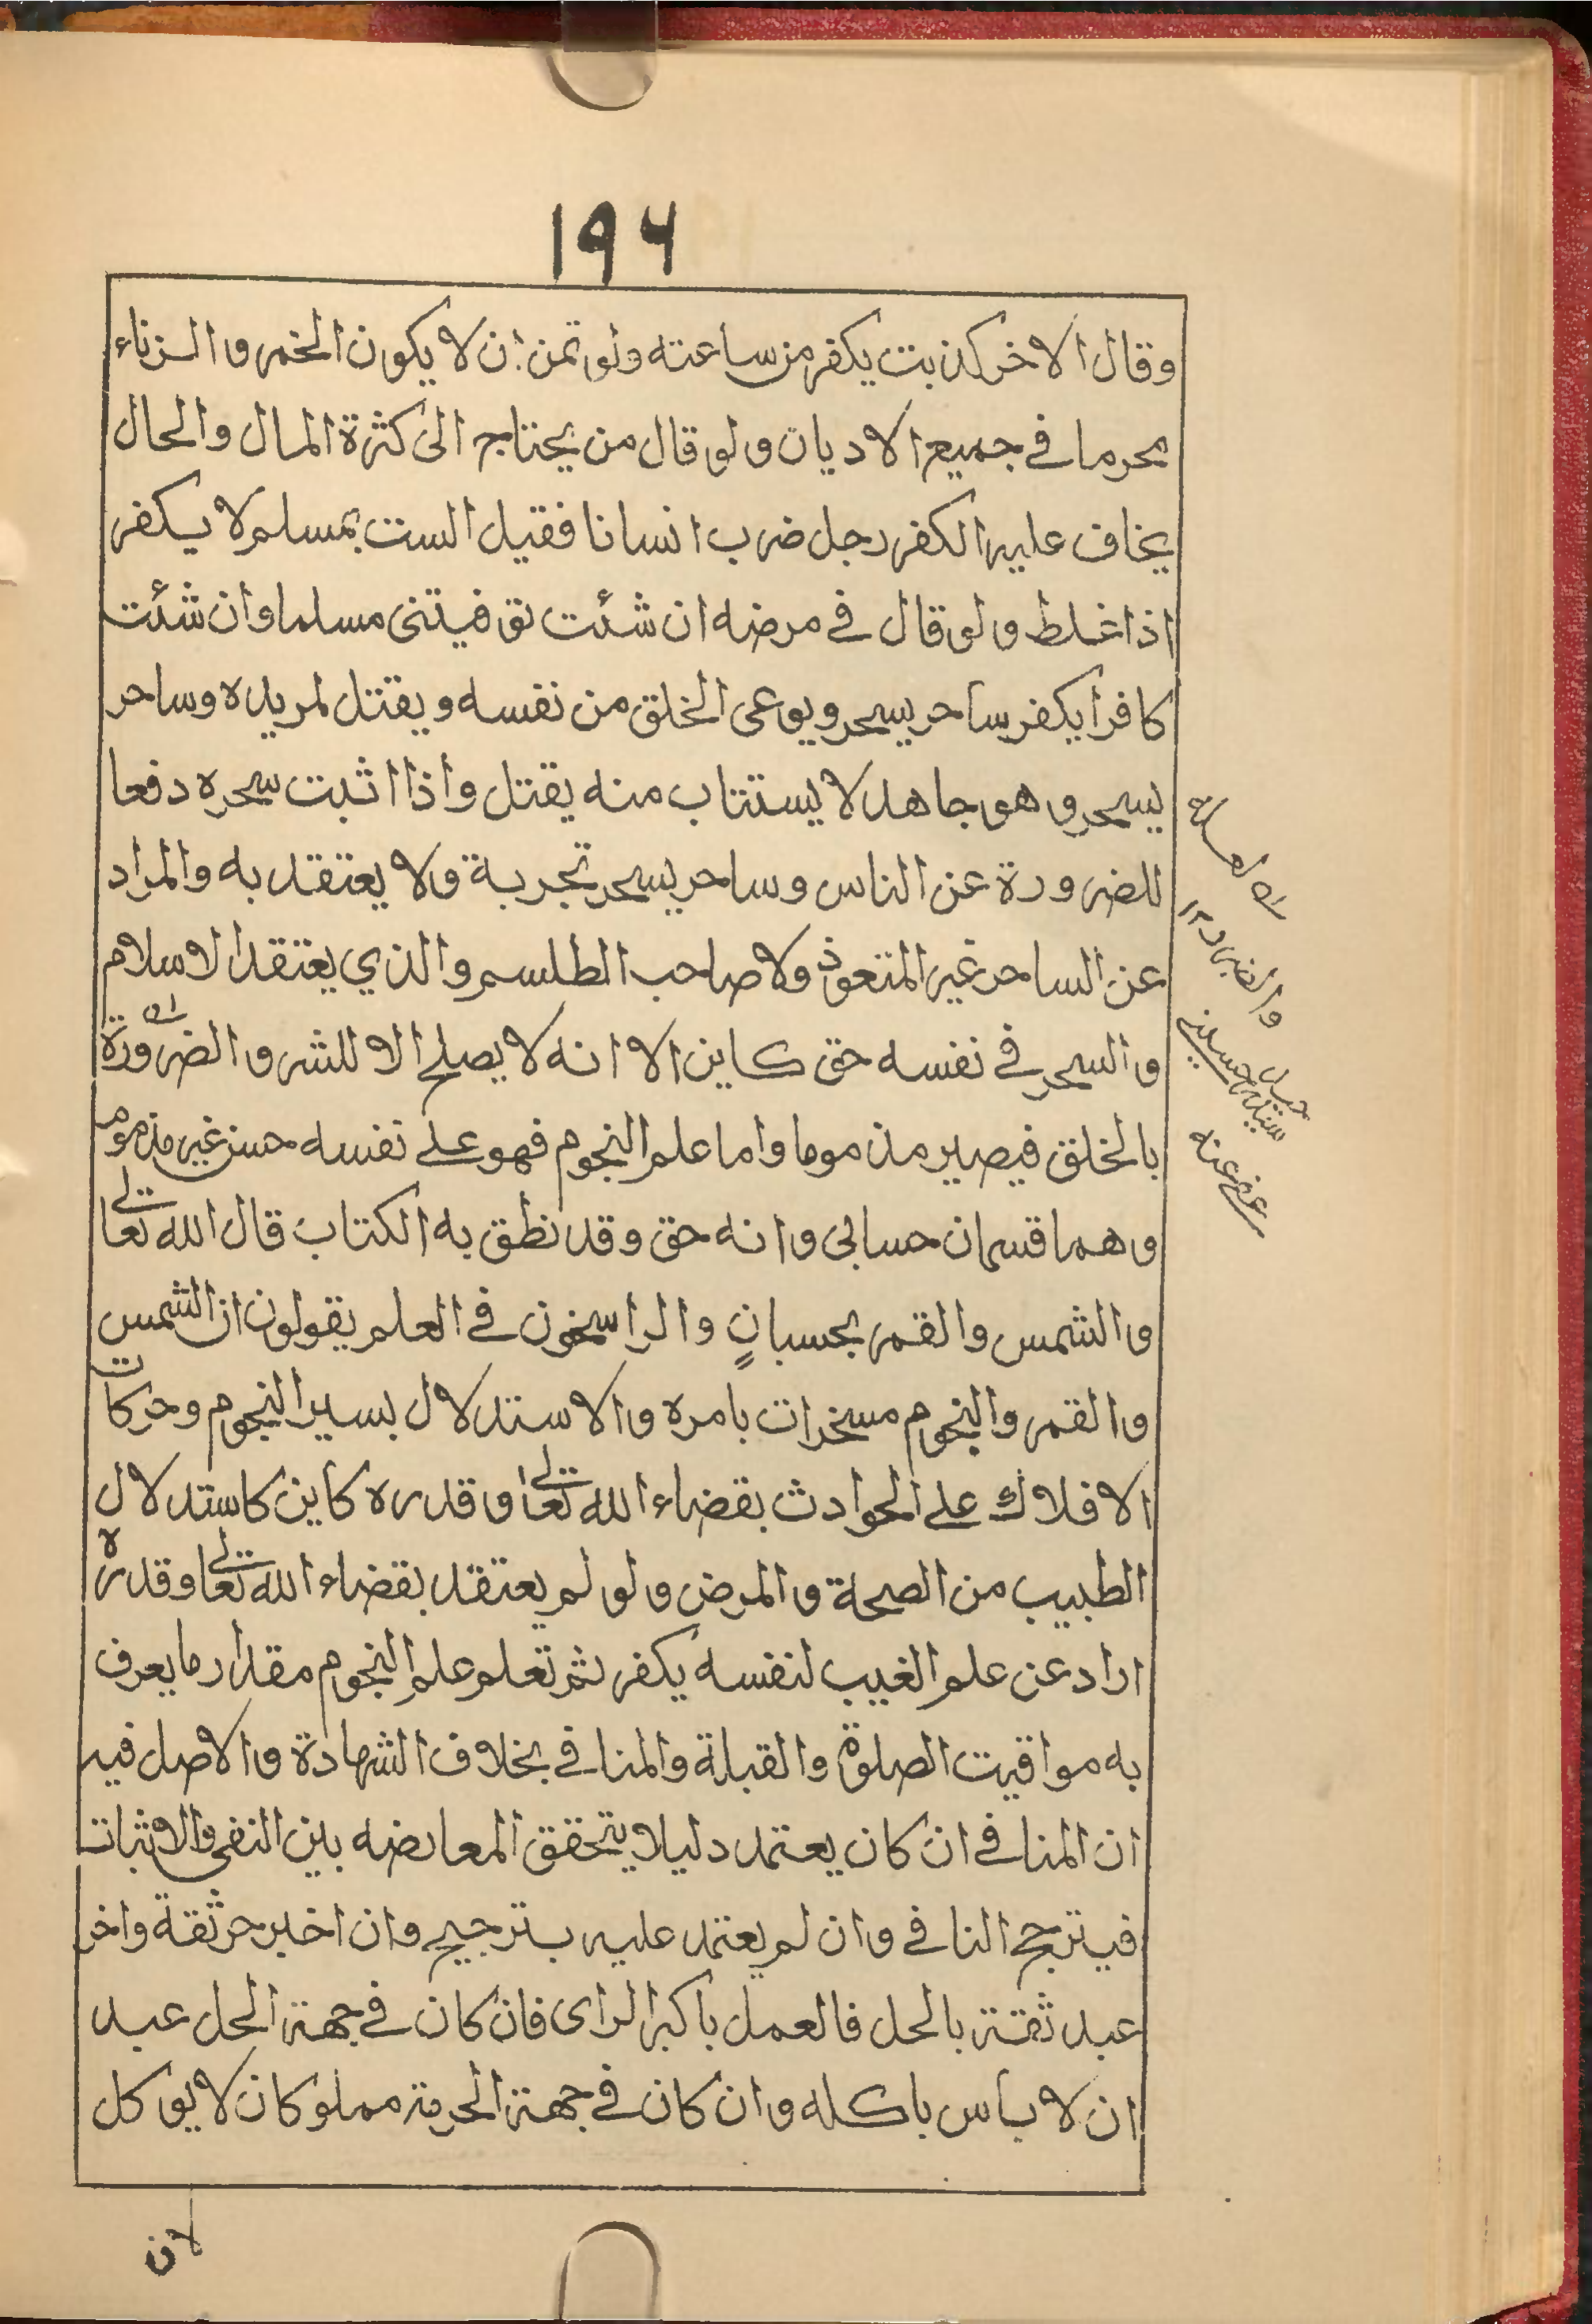 ۱۹۴
وقال الاخر كذبت يكفر من ساعته ولو تمن ان لا يكون الخمر والزناء
محرما في جميع الاديان ولو قال من يحتاج الى كثرة المال والحال
يخاف عليه الكفر رجل ضرب انسانا فقيل الست بمسلم لا يكفر
اذا غلط ولو قال في مرضه ان شئت توفيتنى مسلما وان شئت
كافرا يكفر ساحر يسحر ويوعى الخلق من نفسه ويقتل لمريده وساحر
يسحر وهو جاهل لا يستتاب منه يقتل واذا اثبت سحره دفعا
للضرورة عن الناس وساحر يسحر تجربة ولا يعتقد به والمراد
عن الساحر غير المتعوذ ولا صاحب الطلسم والذي يعتقد الاسلام
والسحر في نفسه حق كاين الا انه لا يصلح الا للشر والضرورة
بالخلق فيصير مذموما واما علم النجوم فهو على نفسه حسن غير مذموم
وهما قسمان حسابى وانه حق وقد نطق به الكتاب قال الله تعالى
والشمس والقمر بحسبانٍ والراسخون في العلم يقولون ان الشمس
والقمر والنجوم مسخرات بامره والاستدلال بسير النجوم وحركات
الافلاك على الحوادث بقضاء الله تعالى وقدره كاين كاستدلال
الطبيب من الصحة والمرض ولو لم يعتقد بقضاء الله تعالى وقدره
اراد عن علم الغيب لنفسه يكفر ثم تعلم علم النجوم مقدار ما يعرف
به مواقيت الصلوة والقبلة والمنافى بخلاف الشهادة والاصل فيه
ان المنافى ان كان يعتمد دليلا يتحقق المعارضه بين النفى والاثبات
فيترجح النافى وان لم يعتمد عليه بترجيح وان اخبر حر ثقة واخر
عبد ثقة بالحل فالعمل باكبر الراى فان كان في جهة الحل عبد
ان لا باس باكله وان كان في جهة الحرمة مملوكان لا يوكل
والضرر ۱۲
سيد حسينى
عفى عنه
لان